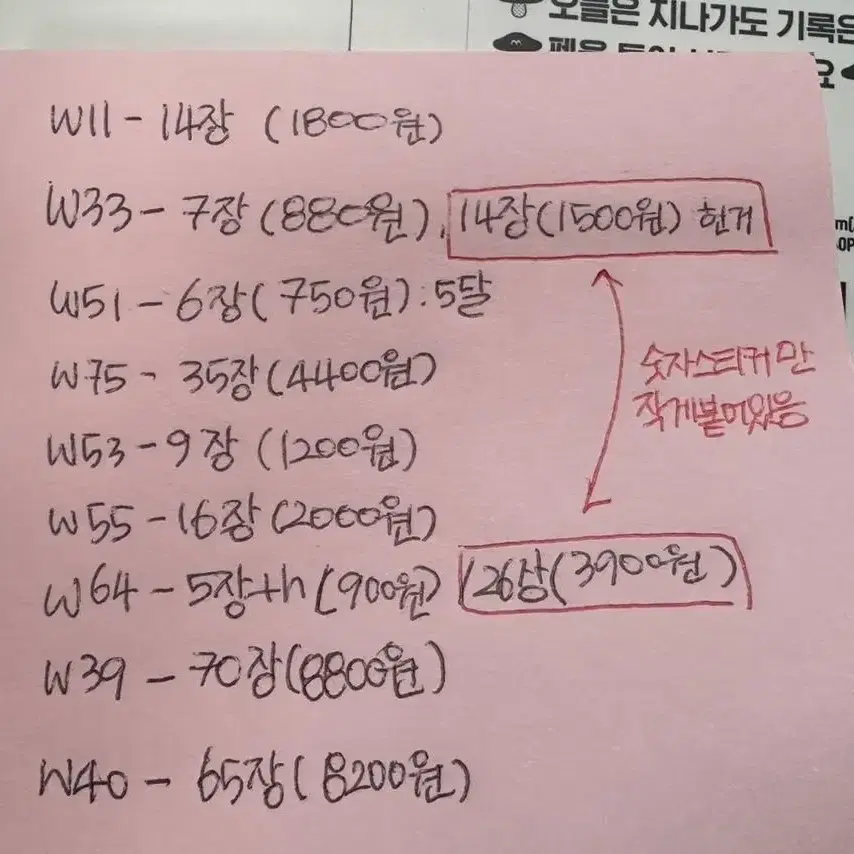 오늘은 지나가도 기록은
펜을
요
W11 - 14장 (1800원)
W33 - 7장 (880원), 14장(1500원) 헌거
W51 - 6장 (750원) : 5달
W75 - 35장(4400원)
숫자스티커만
작게붙어있음
W53 - 9장 (1200원)
W55 - 16장 (2000원)
W64 - 5장+h (900원) / 26상(3900원)
W39 - 70장(8800원)
W40 - 65장 (8200원)